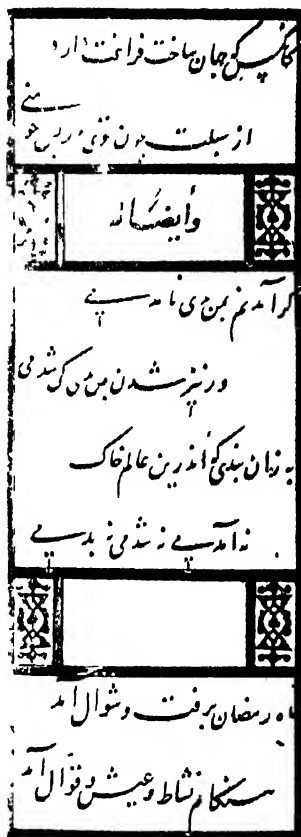 کانکس که جهان ساخت فراغت دارد
از سبلت چون توئی و ریش چو منی
وأیضاً له
گر آمدنم بمن بدی نامدمی
ور نیز شدن بمن بدی کی شدمی
به زان نبدی که اندرین عالم خاک
نه آمدمی نه شدمی نه بدمی
ماه رمضان برفت و شوال آمد
هنگام نشاط و عیش و قوال آمد